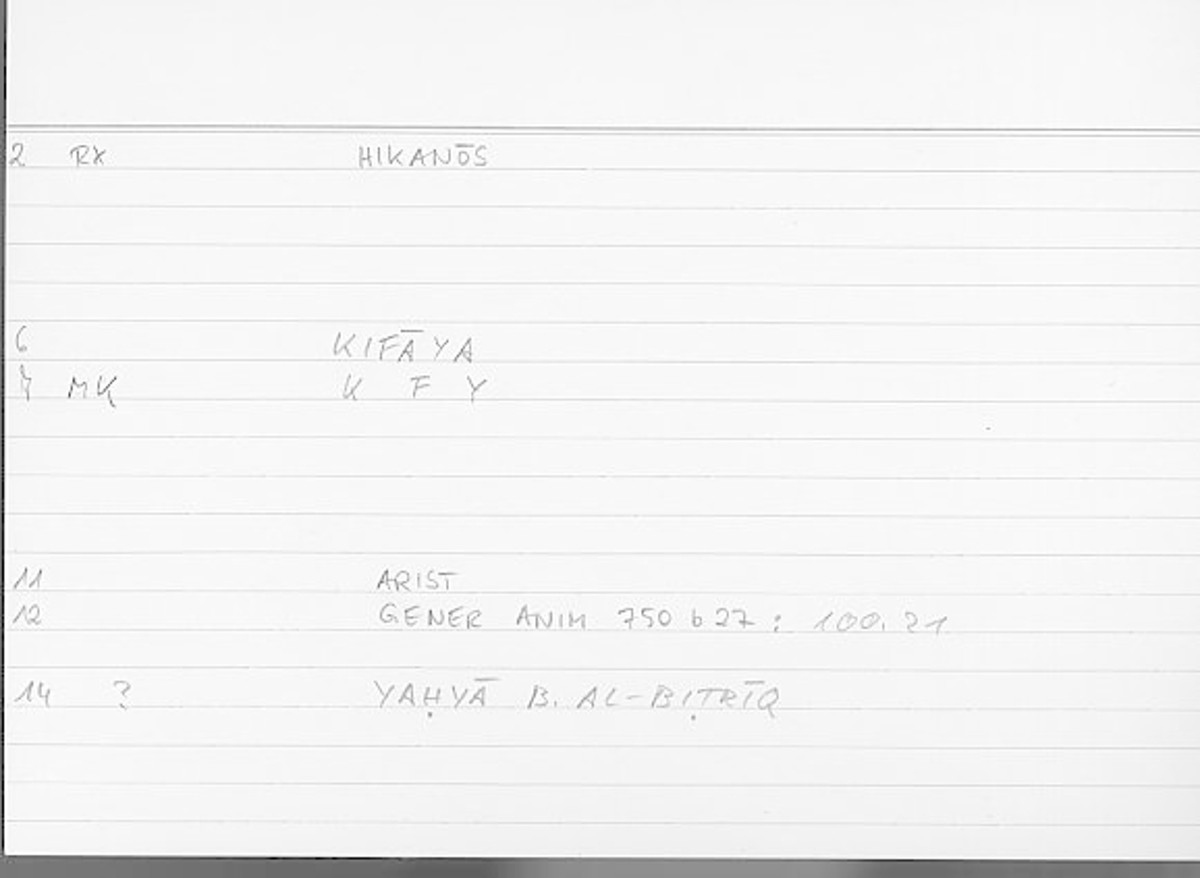 2 RX HIKANŌS
6 KIFĀYA
7 MK K F Y
11 ARIST
12 GENER ANIM 750 b 27 : 100.21
14 ? YAḤYĀ B. AL-BIṬRĪQ